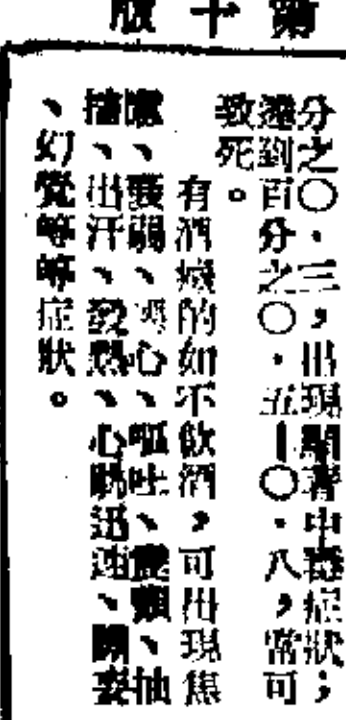 第十版
分之〇·三，出現顯著中毒症狀；
達到百分之〇·五—〇·八，常可
致死。
有酒癮的如不飲酒，可出現焦
慮、衰弱、噁心、嘔吐、震顫、抽
搐、出汗、發熱、心跳迅速、譫妄
、幻覺等等症狀。